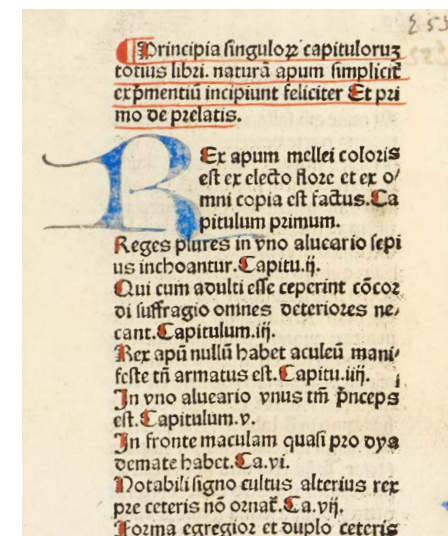 253
¶Principia singuloꝝ capituloruꝫ
totius libri. naturã apum simplicit̃
exp̃mentiũ incipiunt feliciter Et pri
mo de prelatis.
REx apum mellei coloris
est ex electo flore et ex o/
mni copia est factus.Ca
pitulum primum.
Reges plures in vno alueario sepi
us inchoantur.Capitu.ij.
Qui cum adulti esse ceperint cõcor
di suffragio omnes deteriores ne/
cant.Capitulum.iij.
Rex apũ nullũ habet aculeũ mani/
feste tñ armatus est.Capitu.iiij.
In vno alueario vnus tm̃ p̃nceps
est.Capitulum.v.
In fronte maculam quasi pro dya
demate habet.Ca.vi.
Notabili signo cultus alterius rex
pre ceteris nõ ornat̃.Ca.vij.
Forma egregior et duplo ceteris